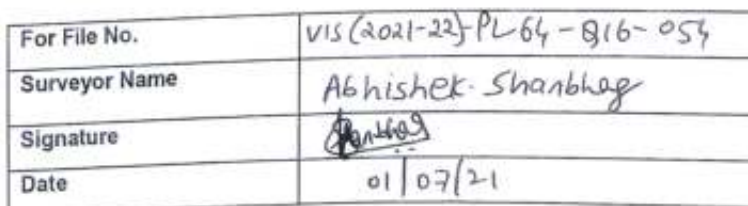 For File No. VIS(2021-22)-PL64-Q16-054
Surveyor Name Abhishek. Shanbhag
Signature Shanbhag
Date 01/07/21